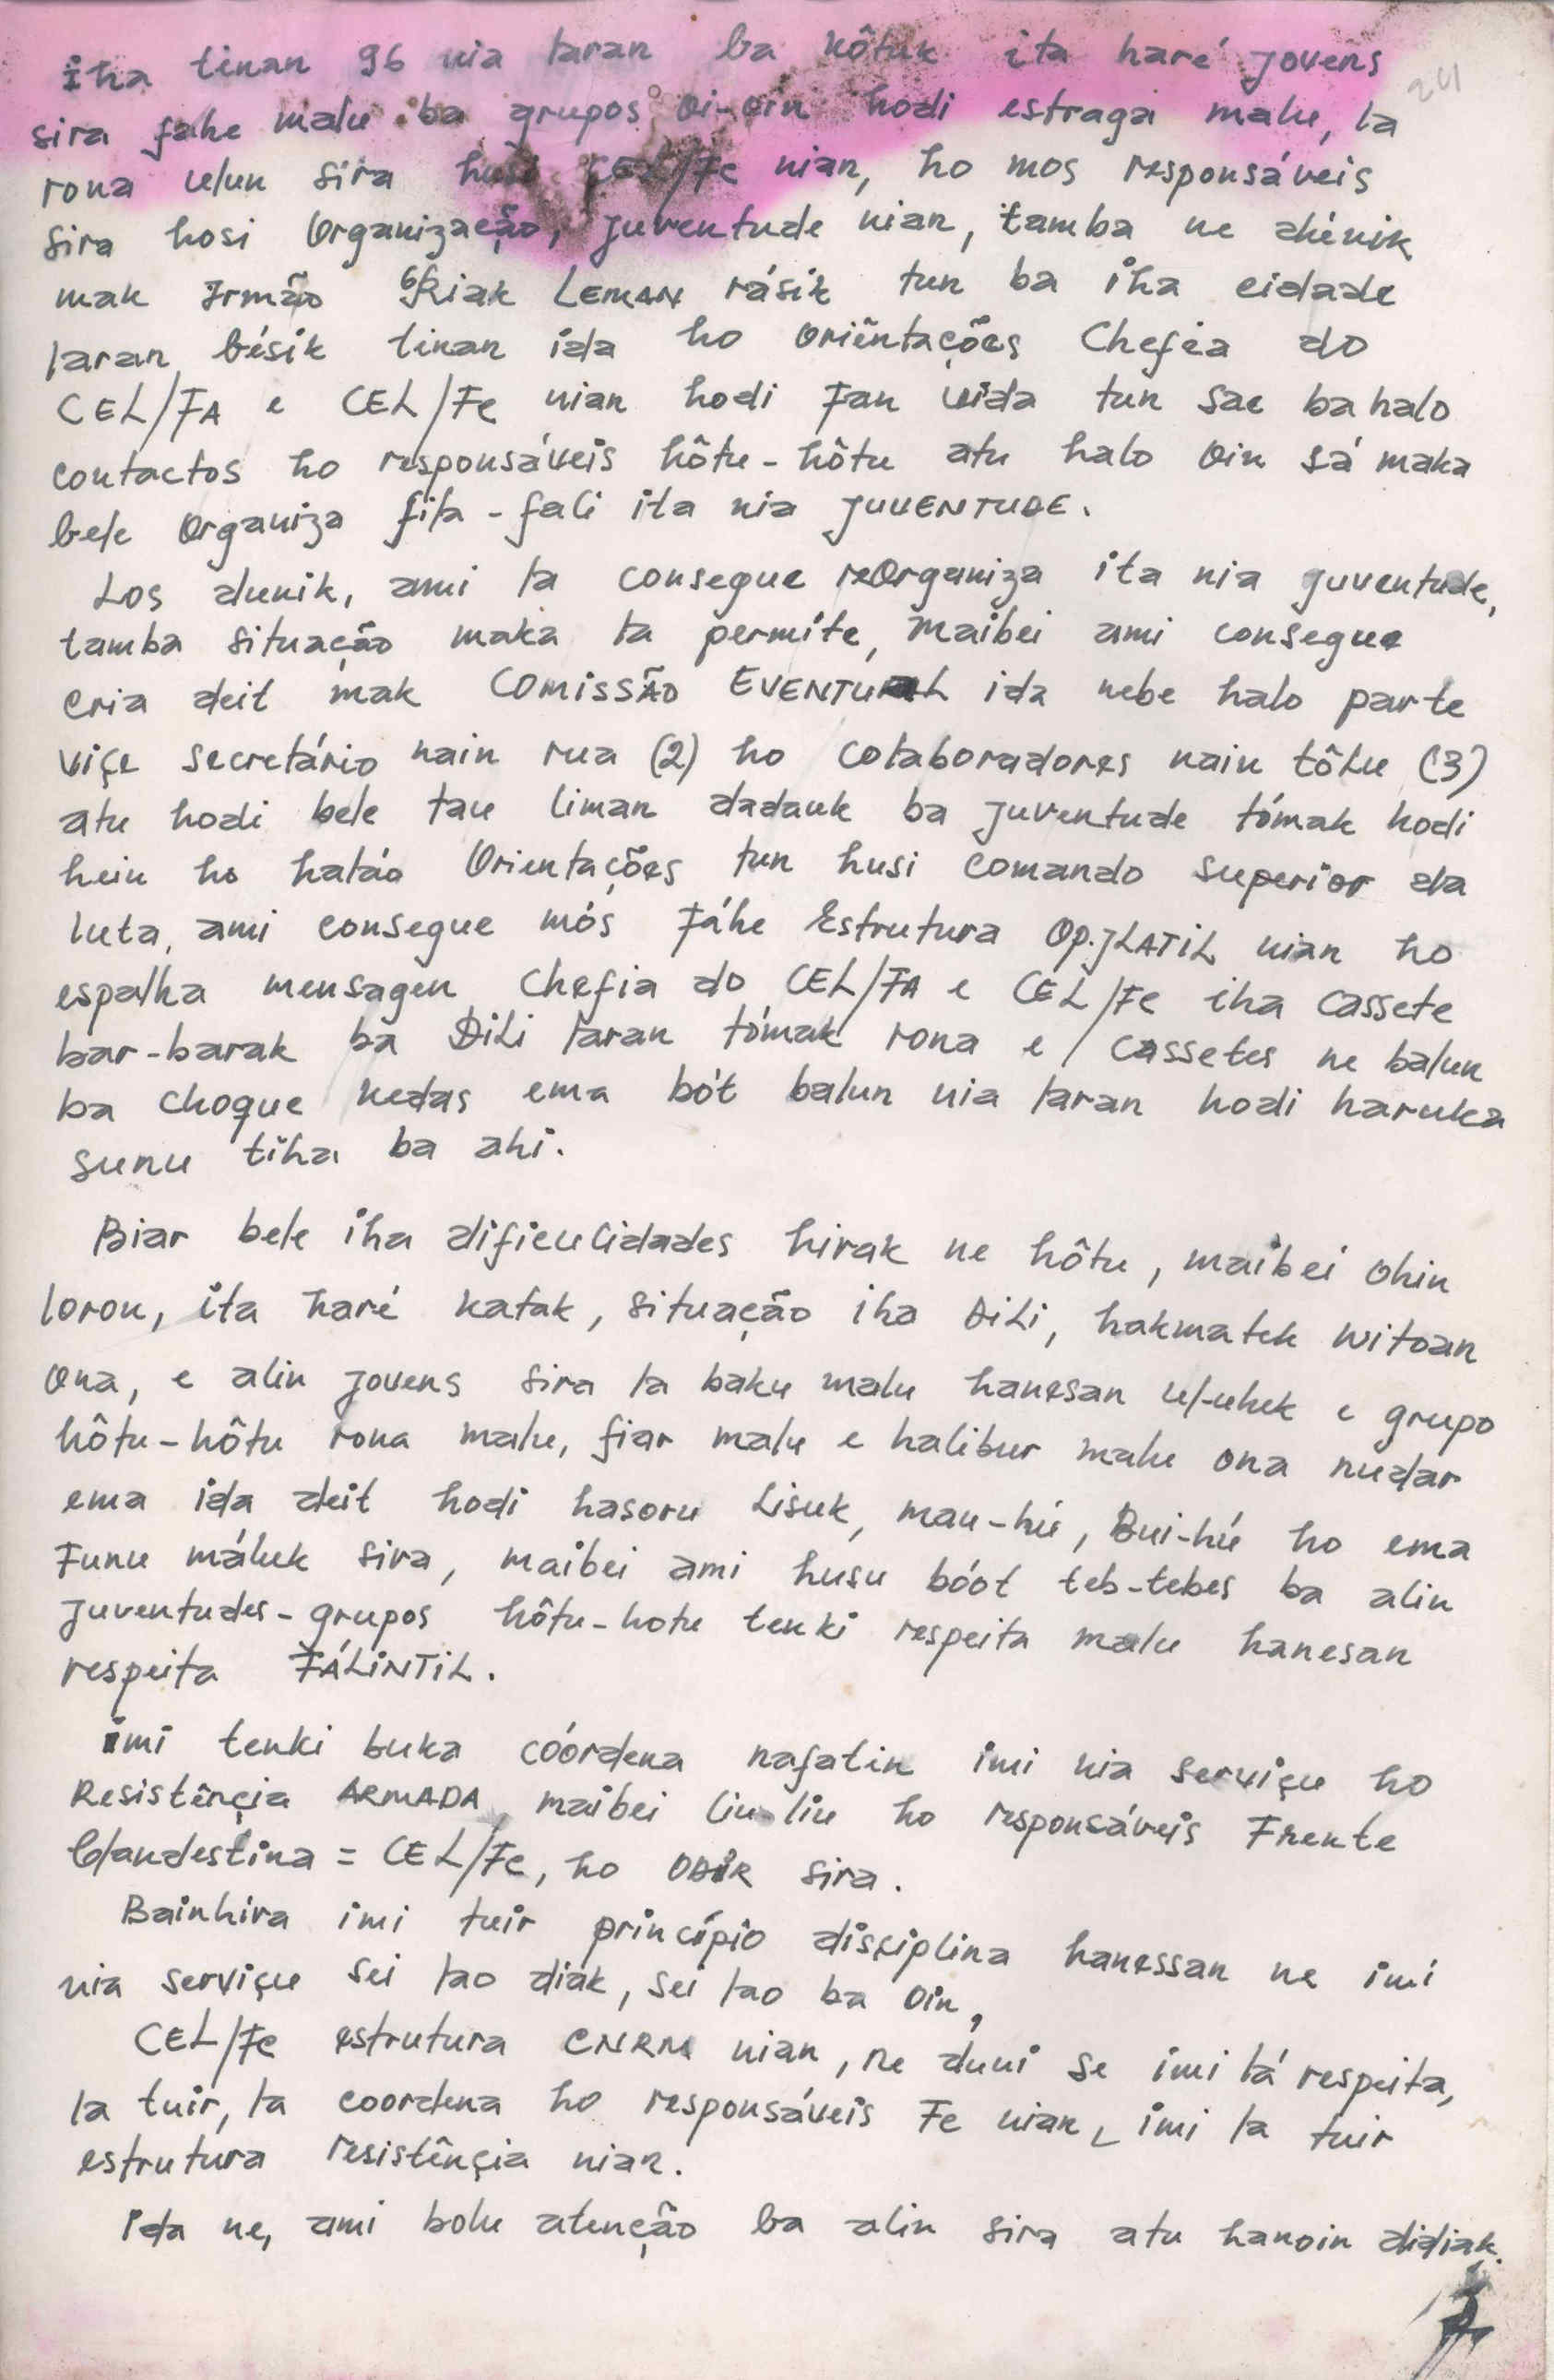 241
Iha tinan 96 nia laran ba kôtuk ita haré jovens
sira fahe malu ba grupos oi-oin hodi estraga malu, la
rona ulun sira husi CEL/Fc nian, ho mos responsáveis
sira hosi Organização, juventude nian, tamba ne dúnik
mak Irmão Riak LEMAN rásik tun ba iha cidade
laran bésik tinan ida ho oriëntações Chefia do
CEL/FA e CEL/Fc nian hodi Fan vida tun sae ba halo
contactos ho responsáveis hôtu-hôtu atu halo oin sá maka
bele Organiza fila-fali ita nia JUVENTUDE.
Los dunik, ami la consegue reOrganiza ita nia juventude,
tamba situação maka la permite, maibei ami consegue
cria deit mak COMISSÃO EVENTUAL ida nebe halo parte
viçe secretário nain rua (2) ho colaboradores nain tôlu (3)
atu hodi bele tau liman dadauk ba juventude tómak hodi
hein ho hatáo Orientações tun husi comando superior da
luta, ami consegue mós Fáhe Estrutura OP.JLATIL nian ho
espalha mensagen Chefia do CEL/FA e CEL/Fc iha cassete
bar-barak ba DiLi laran tómak rona e cassetes ne balun
ba choque kedas ema bót balun nia laran hodi haruka
sunu tiha ba ahi.
Biar bele iha dificulidades hirak ne hôtu, maibei ohin
loron, ita haré katak, situação iha DiLi, hakmatek witoan
ona, e alin jovens sira la baku malu hanesan ul-uluk e grupo
hôtu-hôtu rona malu, fiar malu e halibur malu ona nudar
ema ida deit hodi hasoru Lisuk, mau-hú, Bui-hú ho ema
Funu máluk sira, maibei ami husu bóot teb-tebes ba alin
juventudes-grupos hôtu-hotu tenki respeita malu hanesan
respeita FÁLiNTiL.
imi tenki buka cóórdena nafatin imi nia serviçu ho
Resistênçia ARMADA, maibei liu-liu ho responsáveis Frente
Clandestina = CEL/Fc, ho ODIR sira.
Bainhira imi tuir princípio disçiplina hanessan ne imi
nia serviçu sei lao diak, sei lao ba oin,
CEL/Fc estrutura CNRM nian, ne duni se imi lá respeita,
la tuir, la coordena ho responsáveis Fc nian, imi la tuir
estrutura resistênçia nian.
ida ne, ami bolu atenção ba alin sira atu hanoin didiak.